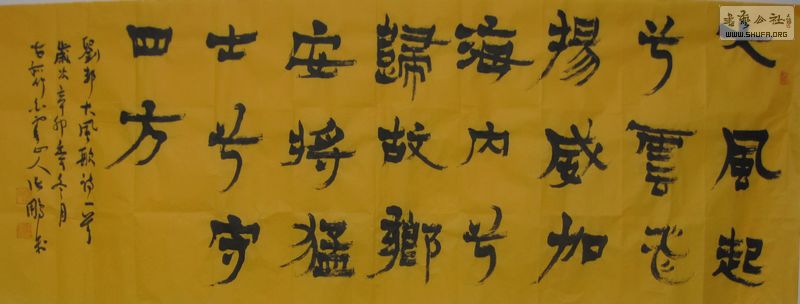 大風起
兮雲飛
揚威加
海内兮
歸故鄉
安將猛
士兮守
四方
劉邦大風歌詩一首
歲次辛卯年冬月
山人
書藝公社
WWW.SHUFA.ORG